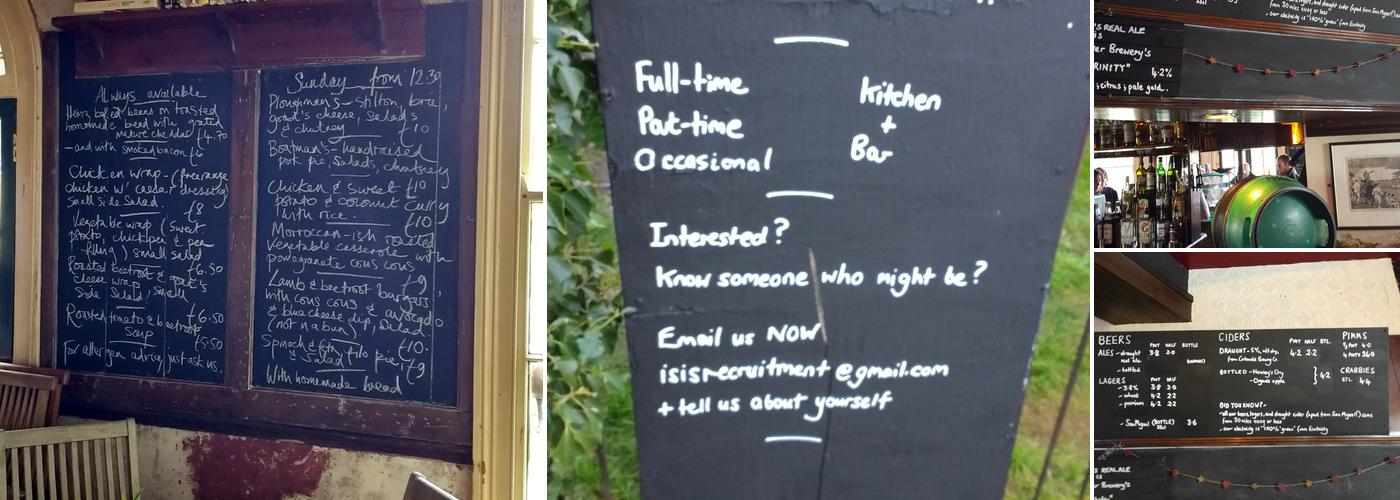 Always available
Heinz baked beans on toasted
homemade bread with grated
mature cheddar £4.70
- and with smoked bacon £6
Chicken wrap - (freerange
chicken w' caesar dressing)
small side salad.
£8
Vegetable wrap (sweet
potato, chickpea & pea
filling) small salad
£6.50
Roasted beetroot & goat's
cheese wrap
Side Salad, small
£6.50
Roasted tomato & beetroot
Soup
£5.50
For allergen advice, just ask us.
Sunday from 12.30
Ploughmans - Stilton, brie,
goat's cheese, Salads
& chutney £10
Boatman's - handraised
pork pie Salads, chutney
£10
Chicken & Sweet
potato & coconut curry
with rice. £10
Morroccan-ish roasted
Vegetable casserole with
pomegranate cous cous
£9
Lamb & beetroot burgers
with cous cous & avocado
& blue cheese dip, Salad
(not in a bun)
£10.
Spinach & feta filo pie,
& Salad £9
With homemade bread
Full-time
Part-time
Occasional
Kitchen
+
Bar
Interested?
Know someone who might be?
Email us NOW
isisrecruitment@gmail.com
+ tell us about yourself
from 30 miles away or less
- our electricity is "100% 'green' from Ecotricity
'S REAL ALE
is
er Brewery's
RINITY"
4.2%
citrus, pale gold.
BEERS
PINT HALF BOTTLE
ALES - draught 3.8 2.0
real ale
- bottled
LAGERS PINT HALF
- 3.8% 3.8 2.0
- wheat 4.2 2.2
- premium 4.2 2.2
- San Miguel (BOTTLE) 3.6
33cl
CIDERS
PINT HALF BTL.
DRAUGHT - 5%, off dry, 4.2 2.2
from Cotswold Brewing Co.
BOTTLED - Henney's Dry
- Organic apple
} 4.2
DID YOU KNOW? -
- all our beer, lagers, and draught cider (apart from San Miguel) come
from 30 miles away or less
- our electricity is "100% 'green' from Ecotricity
PIMMS
½ PINT 4.0
4 PINTS 26.0
CRABBIES
BTL. 4.4
S REAL ALE
is
er Brewery's